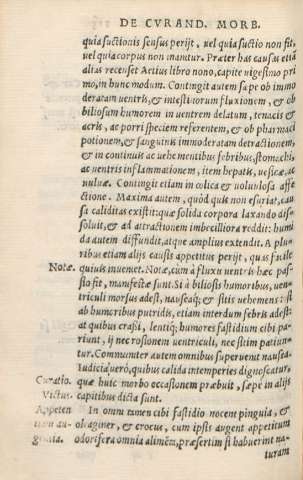 DE CVRAND. MORB.
quia suctionis sensus perijt, uel quia suctio non fit,
uel quia corpus non inanitur. Præter has causas etiã
alias recenset Aetius libro nono, capite uigesimo pri
mo, in hunc modum. Contingit autem sæpe ob immo
deratam uentris, & intestinorum fluxionem, & ob
biliosum humorem in uentrem delatum, tenacis &
acris, ac porri speciem referentem, & ob pharmaci
potionem, & sanguinis immoderatam detractionem,
& in continuis ac uehementibus febribus, stomachi,
ac uentris inflammationem, item hepatis, uesicæ, ac
uuluæ. Contingit etiam in colica & uoluulosa affe
ctione. Maxima autem, quòd quis non esuriat, cau
sa caliditas existit: quæ solida corpora laxando dis-
soluit, & ad attractionem imbecilliora reddit: humi
da autem diffundit, atque amplius extendit. A pluri
ribus etiam alijs causis appetitus perijt, quas facile
Notæ. quiuis inuenet. Notæ, cum à fluxu uentris hæc pas-
sio fit, manifestæ sunt. Si à biliosis humoribus, uen-
triculi morsus adest, nauseaq́; & sitis uehemens: si
ab humoribus putridis, etiam interdum febris adest:
at quibus crassi, lentiq́; humores fastidium cibi pa-
riunt, ij nec rosionem uentriculi, nec sitim patiun-
tur. Communiter autem omnibus superuenit nausea.
Iudicia uerò, quibus calida intemperies dignoscatur,
Curatio. quæ huic morbo occasionem præbuit, sæpe in alijs
Victus. capitibus dicta sunt.
Appeten In omni tamen cibi fastidio nocent pinguia, &
oleaginer, & crocus, cum ipsis augent appetitum
odorifera omnia alimẽta, præsertim si habuerint na-
turam